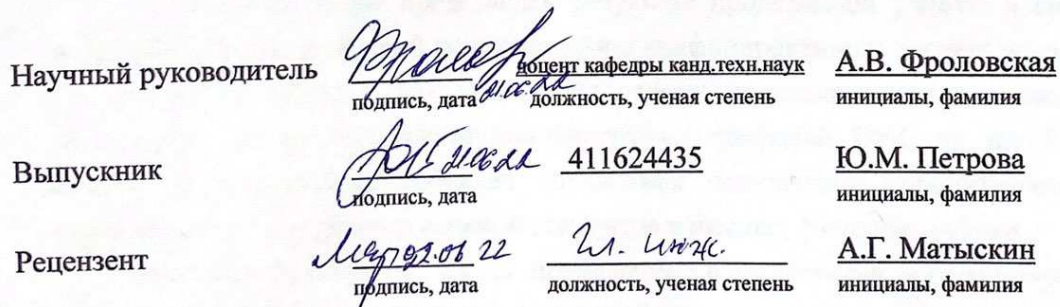 Научный руководитель доцент кафедры канд.техн.наук А.В. Фроловская
подпись, дата должность, ученая степень инициалы, фамилия
Выпускник 21.06.22 411624435 Ю.М. Петрова
подпись, дата инициалы, фамилия
Рецензент 22.06 22 Гл. инж. А.Г. Матыскин
подпись, дата должность, ученая степень инициалы, фамилия